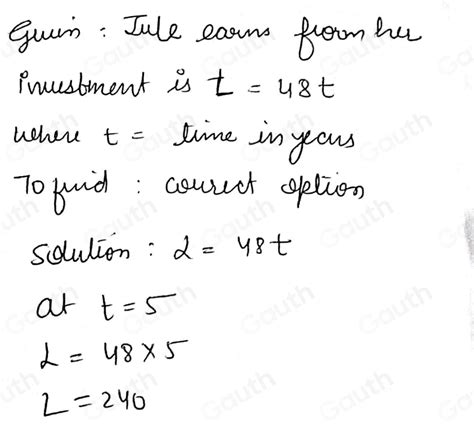 Given : Jule earns from her
investment is L = 48t
where t = time in years
To find : correct option
Solution : L = 48t
at t = 5
L = 48 × 5
L = 240